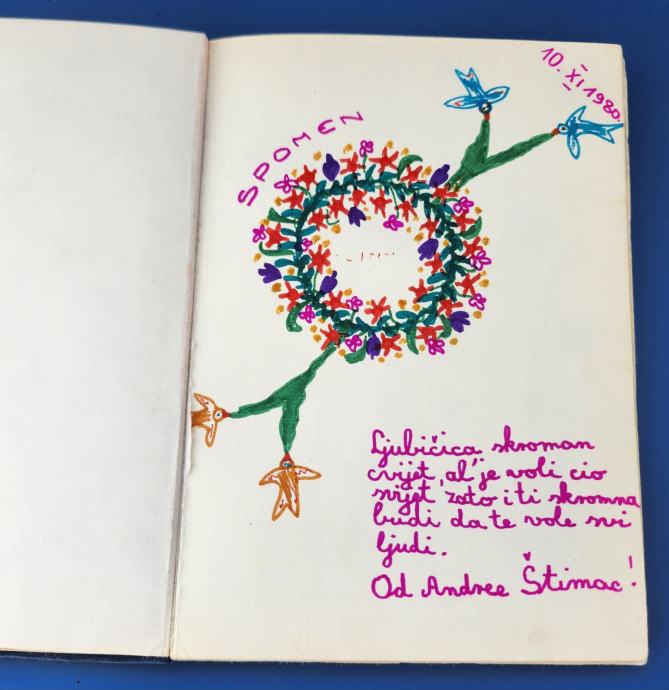 10. XI 1980.
SPOMEN
Ljubičica skroman
cvijet, al' je voli cio
svijet zato i ti skromna
budi da te vole svi
ljudi.
Od Andree Štimac!